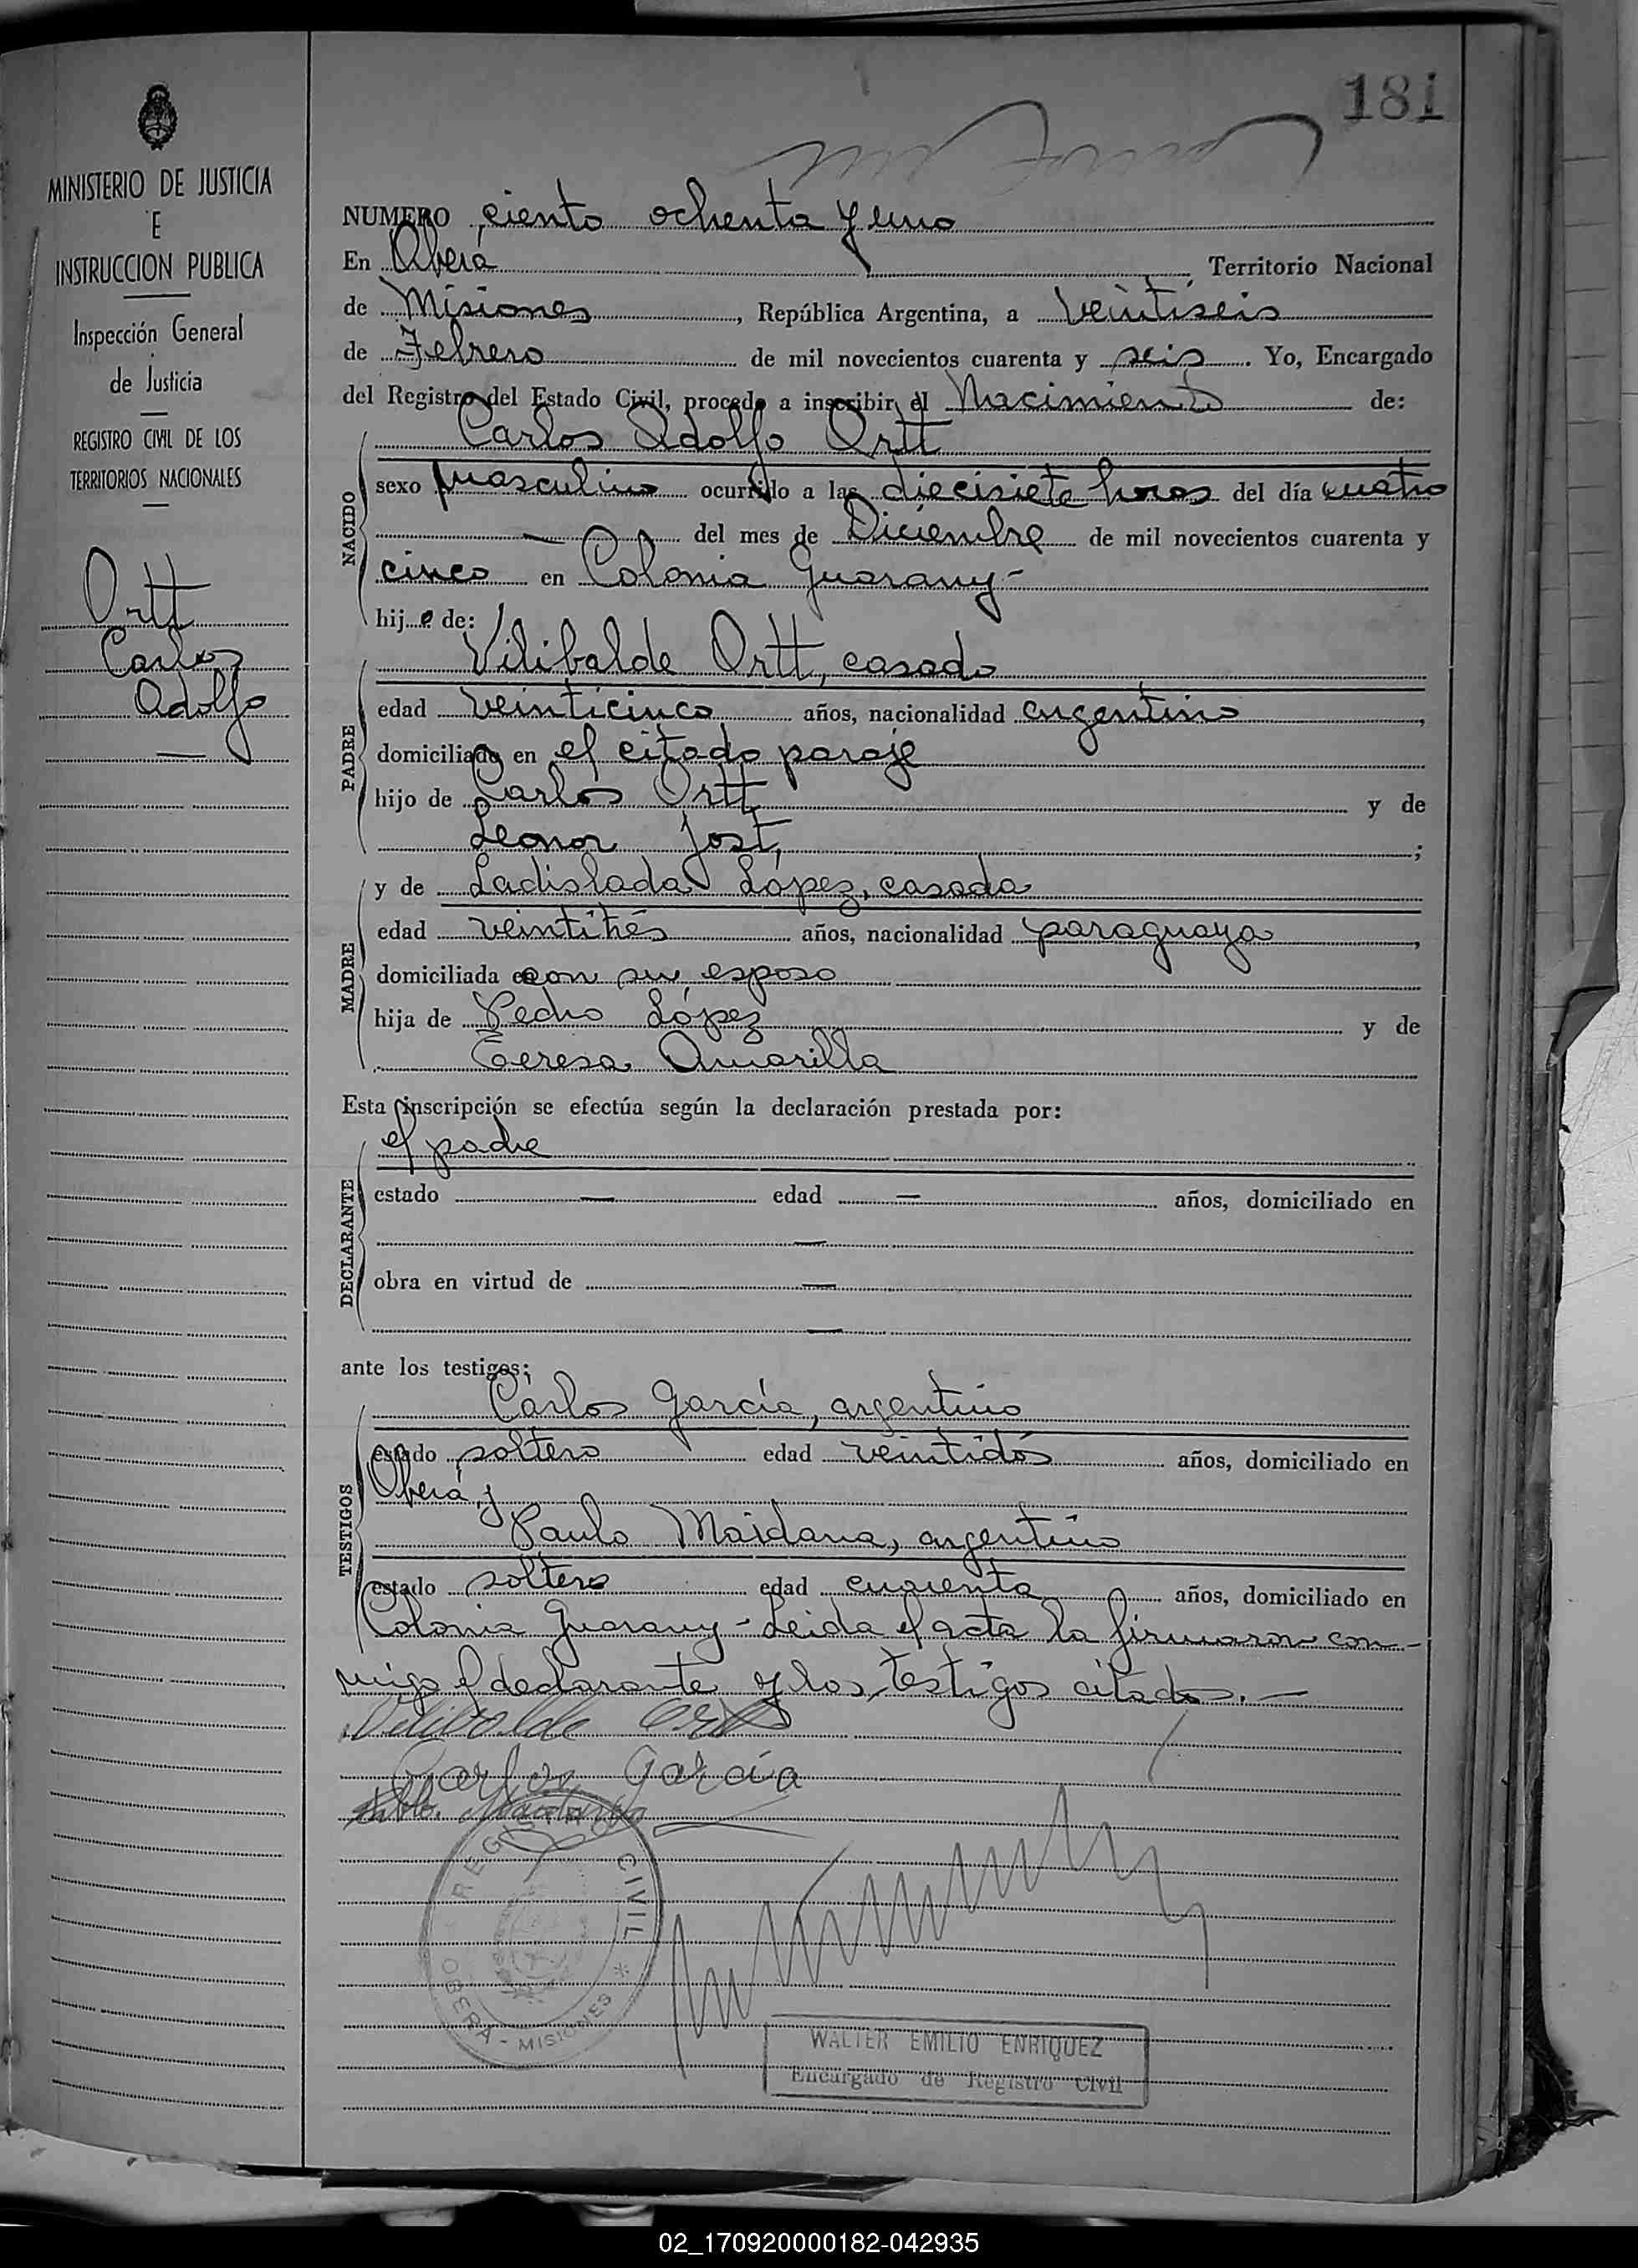 181
MINISTERIO DE JUSTICIA
E
INSTRUCCION PUBLICA
Inspección General
de Justicia
REGISTRO CIVIL DE LOS
TERRITORIOS NACIONALES
Ortt
Carlos
Adolfo
NUMERO ciento ochenta y uno
En Oberá Territorio Nacional
de Misiones, República Argentina, a veintiseis
de Febrero de mil novecientos cuarenta y seis. Yo, Encargado
del Registro del Estado Civil, procedo a inscribir el Nacimiento de:
NACIDO
Carlos Adolfo Ortt
sexo masculino ocurrido a las diecisiete horas del día cuatro
— del mes de Diciembre de mil novecientos cuarenta y
cinco en Colonia Guarany-
hijo de:
PADRE
Vilibalde Ortt, casado
edad veinticinco años, nacionalidad argentino,
domiciliado en el citado paraje
hijo de Carlos Ortt y de
Leonor Jost,;
MADRE
y de Ladislada López, casada
edad veintitrés años, nacionalidad paraguaya,
domiciliada en con su esposo
hija de Pedro López y de
Teresa Amarilla
Esta inscripción se efectúa según la declaración prestada por:
DECLARANTE
el padre
estado — edad — años, domiciliado en
—
obra en virtud de —
—
ante los testigos:
TESTIGOS
Carlos García, argentino
estado soltero edad veintidós años, domiciliado en
Oberá, y
Paulo Maidana, argentino
estado soltero edad cuarenta años, domiciliado en
Colonia Guarany - Leida el acta la firmaron con-
migo el declarante y los testigos citados. —
Vilibalde Ortt
Carlos García
Maidana
REGISTRO CIVIL
OBERA - MISIONES *
WALTER EMILIO ENRIQUEZ
Encargado de Registro Civil
02_170920000182-042935